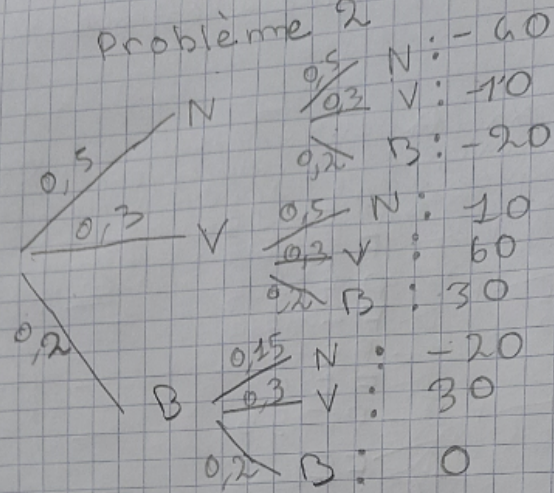 Problème 2
0,5 N : - 40
0,3 V : - 10
0,2 B : - 20
0,5 N
0,3 V
0,2 B
0,5 N : 10
0,3 V : 60
0,2 B : 30
0,15 N : - 20
0,3 V : 30
0,2 B : 0